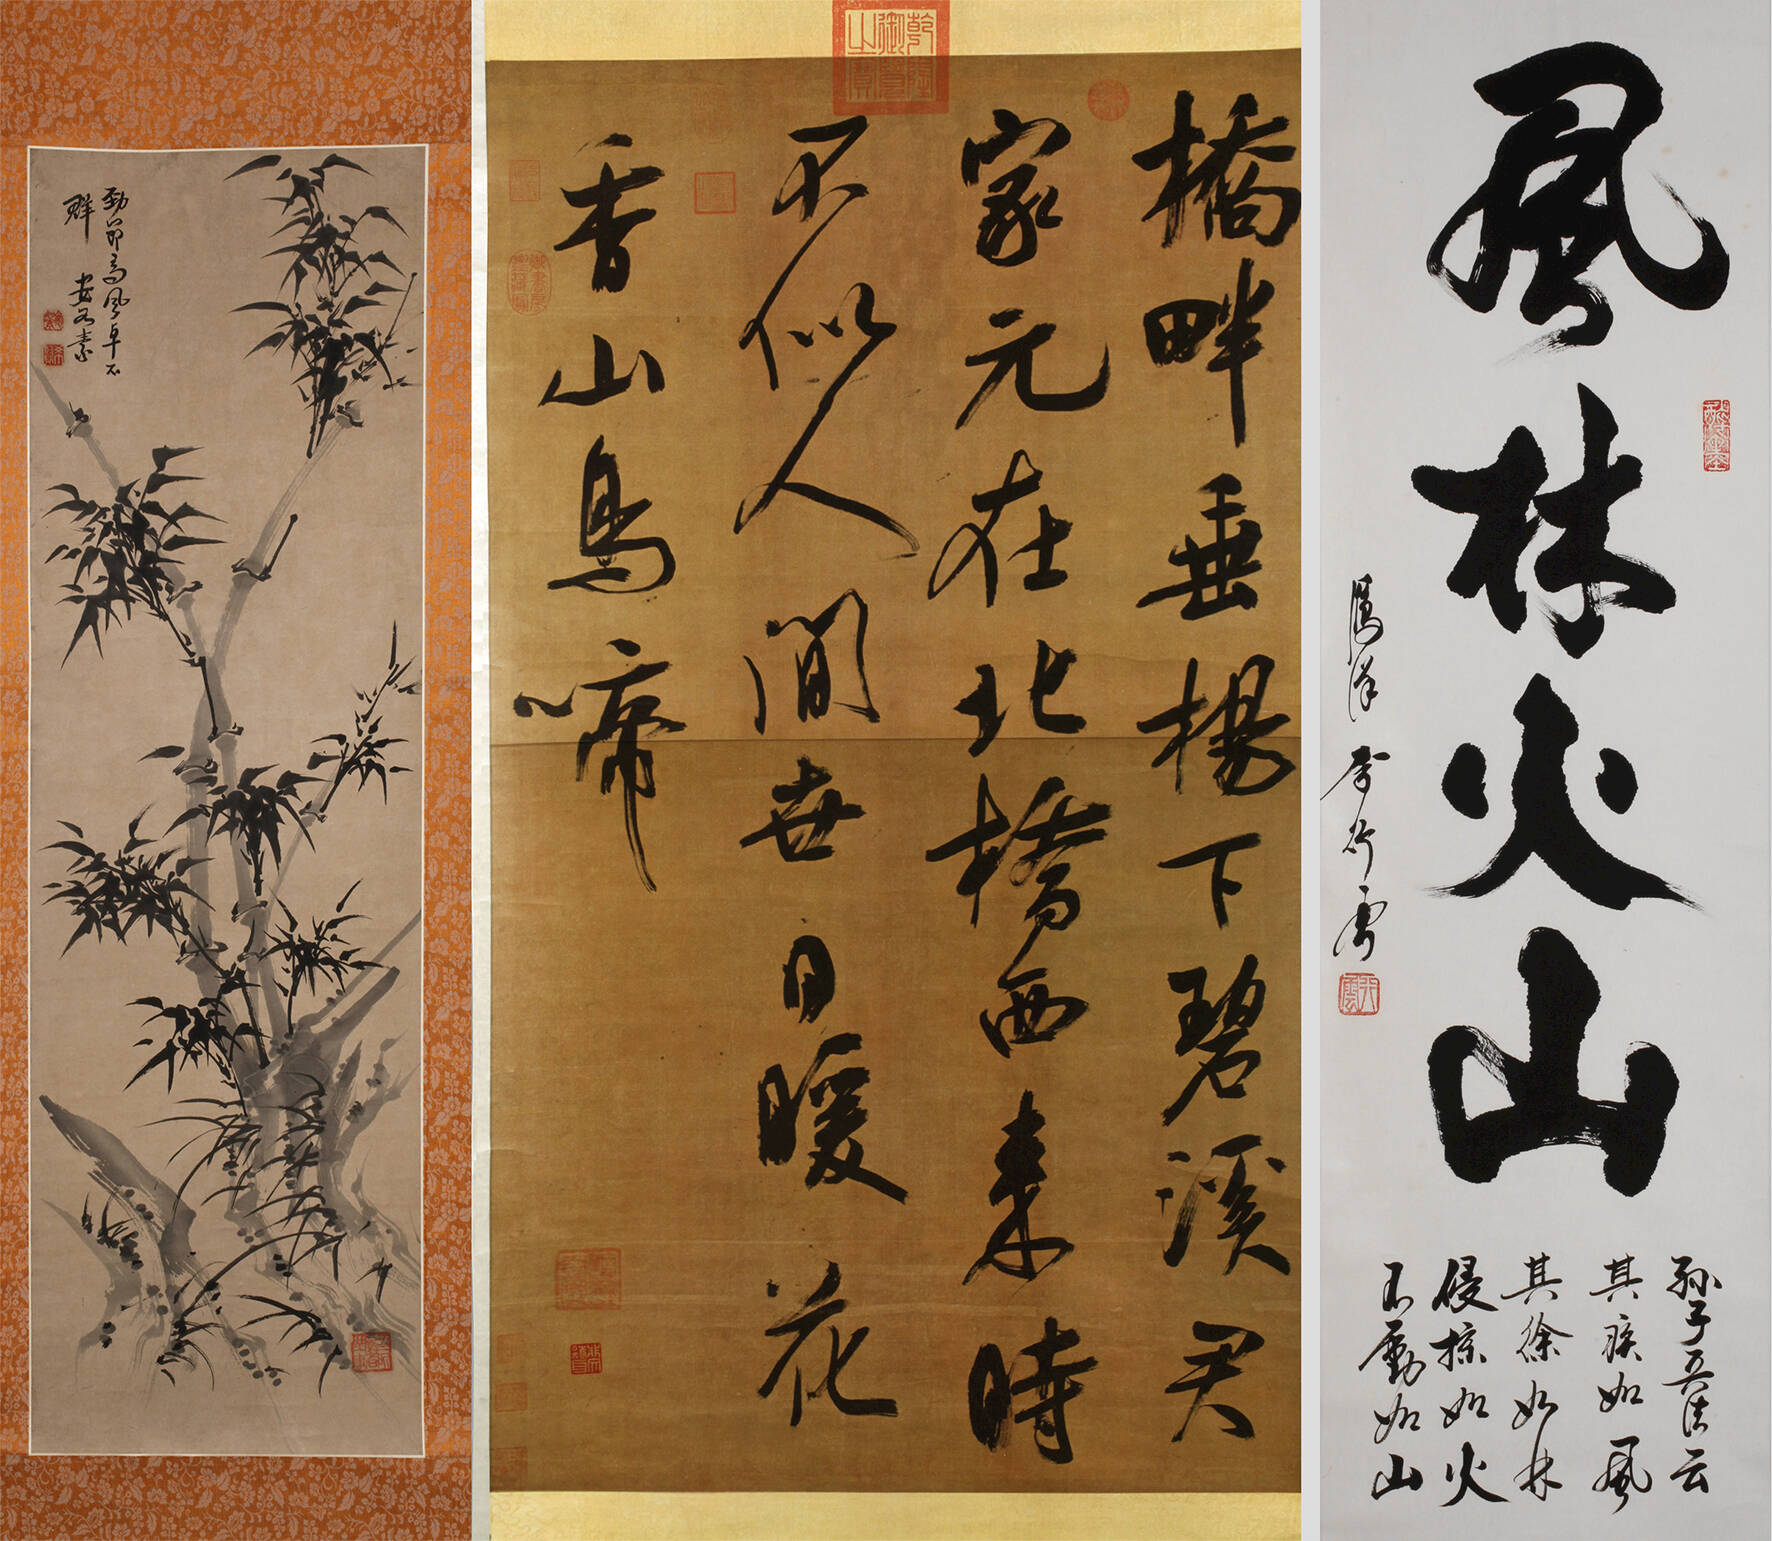 勁節高風卓不
群
乾隆御覽之寶
橋畔垂楊下碧溪君
家元在北橋西來時
不似人間世日暖花
香山鳥啼
風林火山
孫子兵法云
其疾如風
其徐如林
侵掠如火
不動如山
李行雲